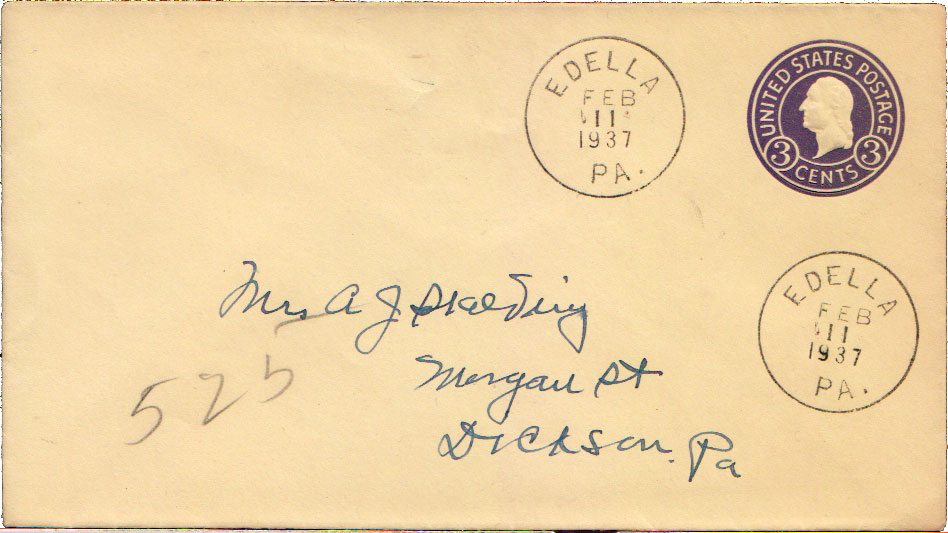 EDELLA
FEB
11
1937
PA.
UNITED STATES POSTAGE
3 3
CENTS
EDELLA
FEB
11
1937
PA.
Mrs A J
Morgan St
Dickson. Pa
525